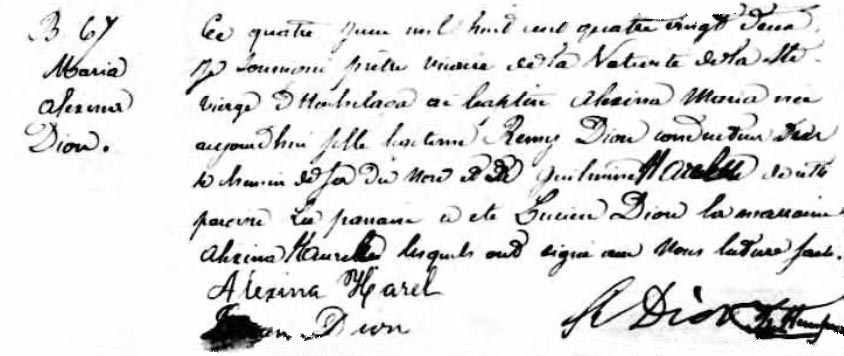 B 67
Maria
Alexina
Dion.
Ce quatre juin mil huit cent quatre vingt deux
je soussigné prêtre vicaire de la Nativité de la Ste
vierge d'Hochelaga ai baptisé Alexina Maria née
aujourdhui fille légitime Remy Dion conducteur sur
le chemin de fer du Nord et de
paroisse Le parrain a été Lucien Dion la marraine
Alexina lesquels ont signé avec Nous lecture faite.
Alexina Harel
Dion
R Dion